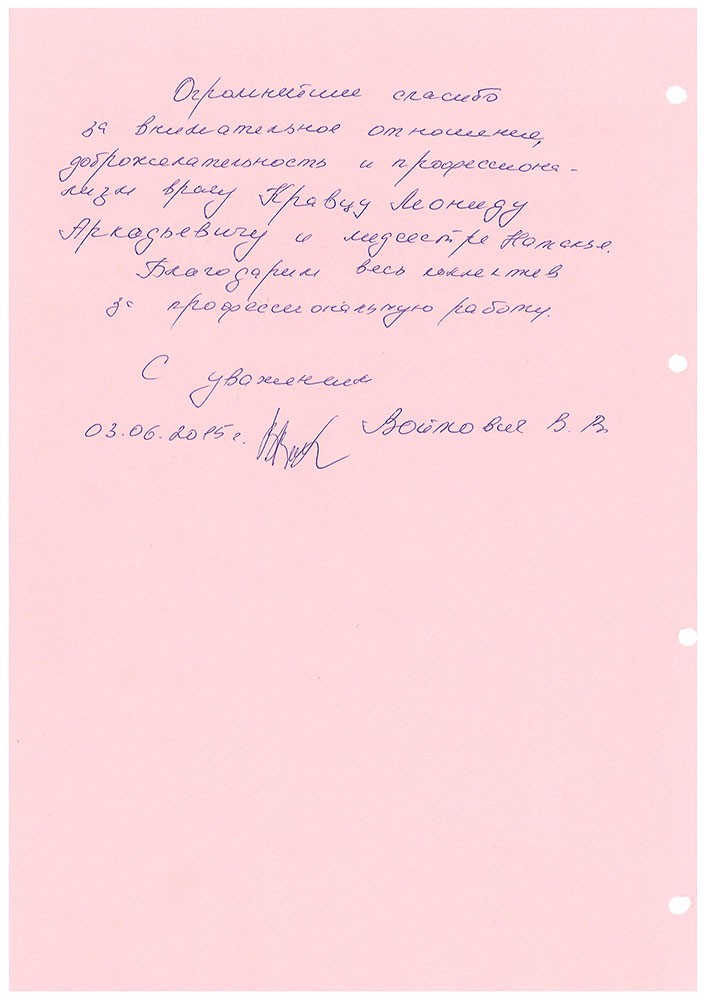 Огромнейшее спасибо
за внимательное отношение,
доброжелательность и профессиона-
лизм врачу Кравцу Леониду
Аркадьевичу и медсестре Наталье.
Благодарим весь коллектив
за профессиональную работу.
С уважением
03.06.2015г. Войтович В. В